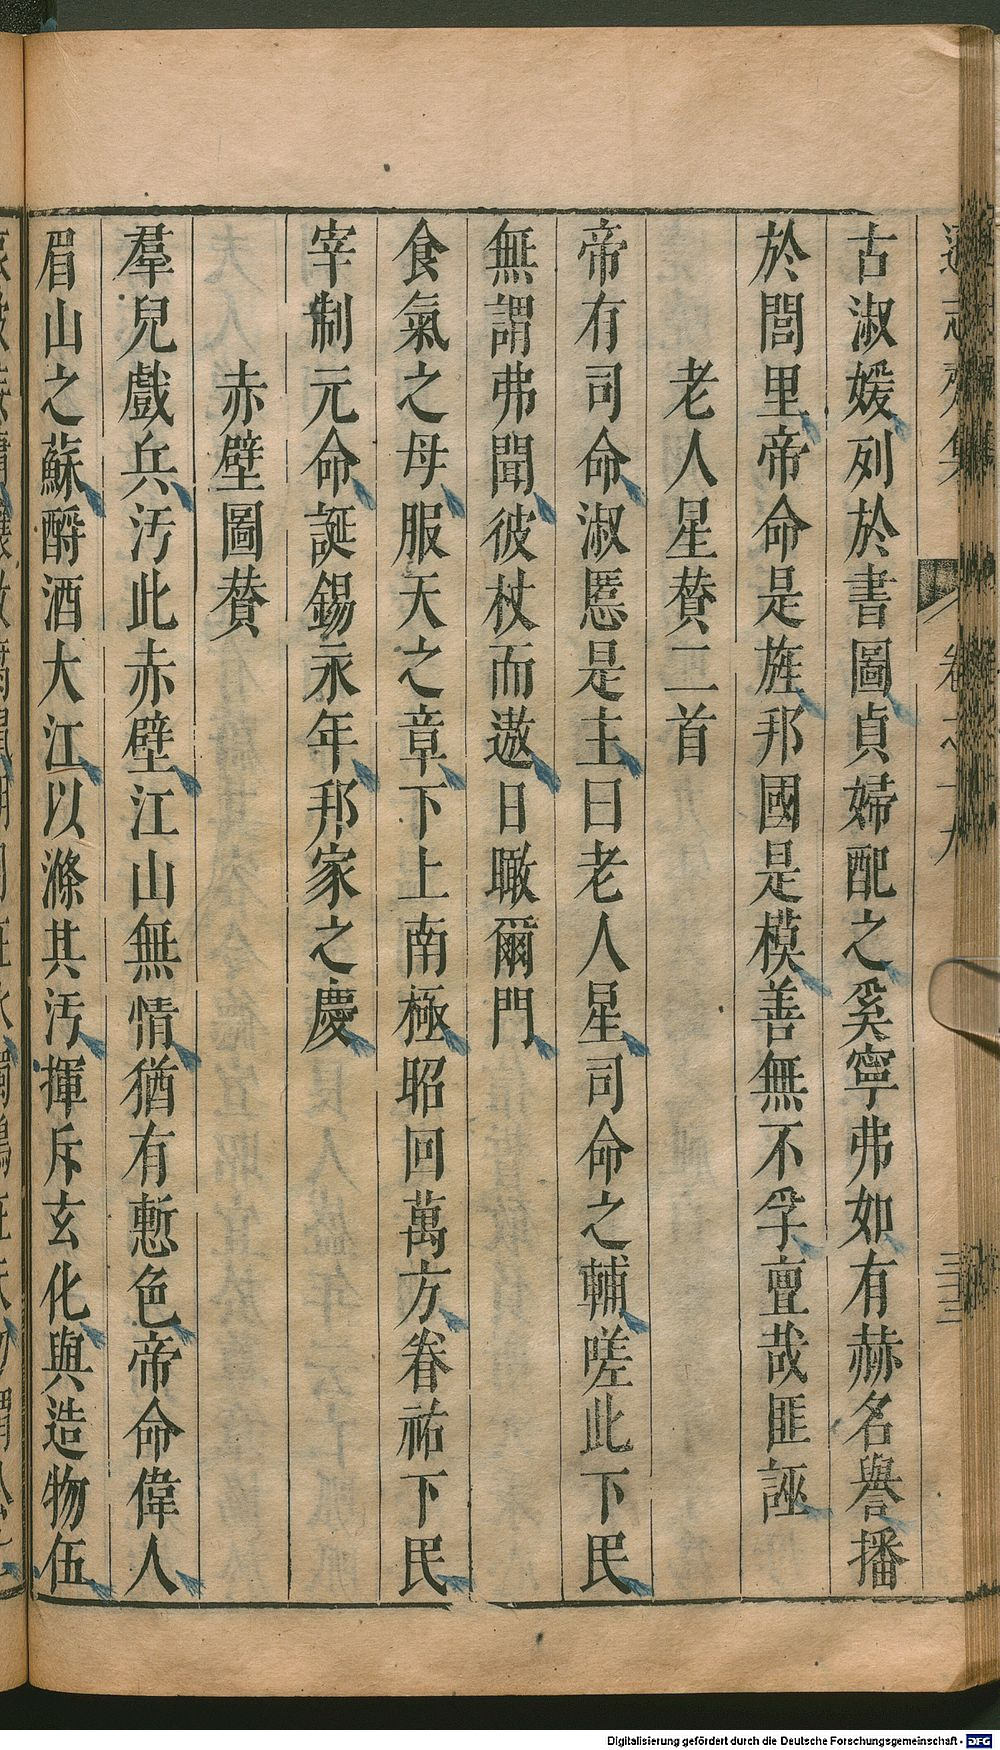 古淑媛列於書圖貞婦配之奚寧弗如有赫名譽播
於閭里帝命是旌邦國是模善無不孚亶哉匪誣
老人星贊二首
帝有司命淑慝是主曰老人星司命之輔嗟此下民
無謂弗聞彼杖而遨日瞰爾門
食氣之母服天之章下上南極昭回萬方眷祐下民
宰制元命誕錫永年邦家之慶
赤壁圖贊
羣兒戲兵汚此赤壁江山無情猶有慙色帝命偉人
眉山之蘇酹酒大江以滌其汚揮斥玄化與造物伍
Digitalisierung gefördert durch die Deutsche Forschungsgemeinschaft - DFG